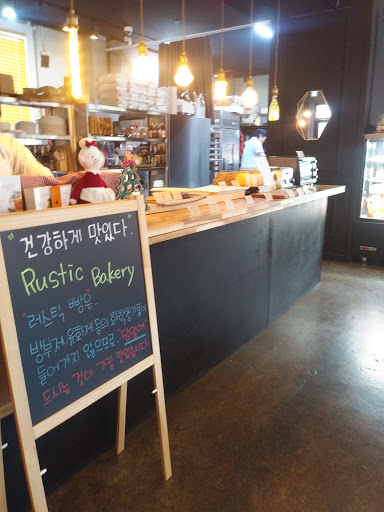 "건강하게 맛있다."
Rustic Bakery
"러스틱 빵"은
방부제,유화제등의 화학첨가물이
들어가지 않으므로, 당일에
드시는 것이 가장 맛있습니다